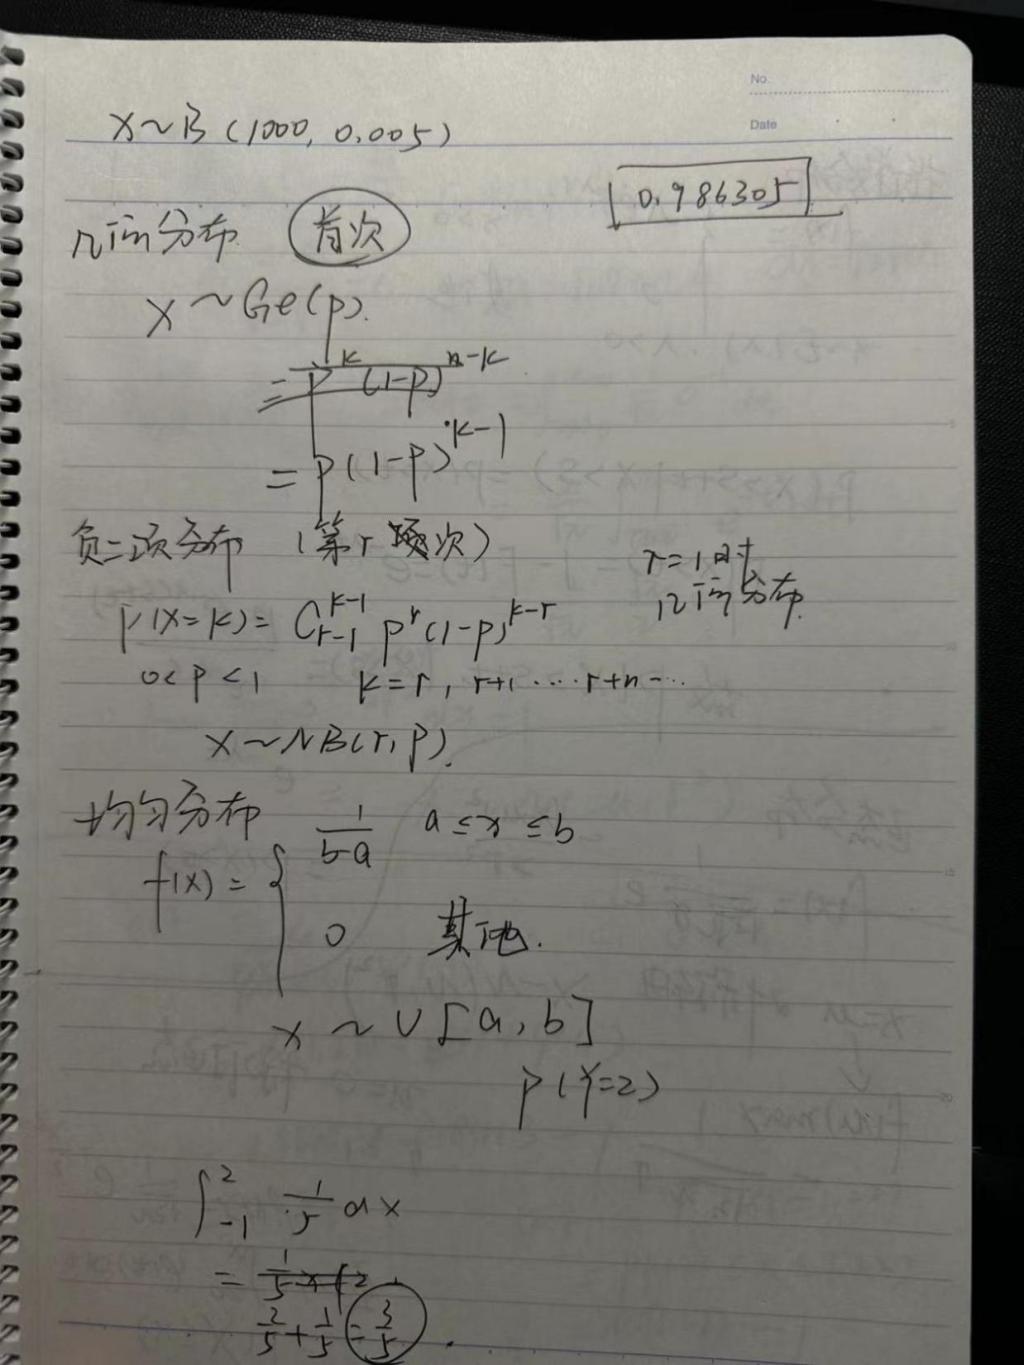 No.
Date
X~B(1000, 0.005)
0.986305
几何分布 首次
X~Ge(p).
= p^k (1-p)^{n-k}
= p(1-p)^{k-1}
负二项分布 (第r次)
r=1时
几何分布.
P(X=k)= C_{r-1}^{k-1} p^r (1-p)^{k-r}
0<p<1 k=r, r+1 ···· r+n ···
X~NB(r,p).
均匀分布
f(x)= { 1/(b-a) a≤x≤b
0 其他.
X ~ U[a,b]
P(Y=2)
∫_{-1}^{2} 1/5 dx
= 1/5 x|2
2/5+1/5=3/5.